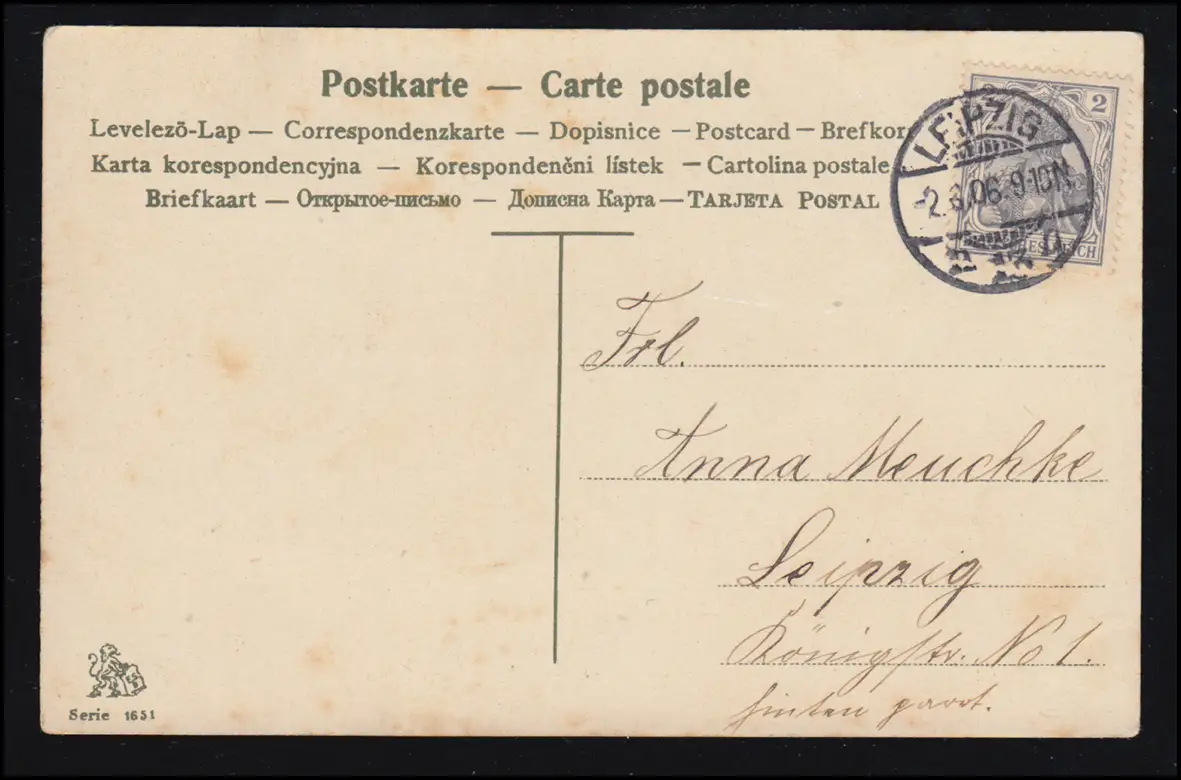 Postkarte — Carte postale
Levelező-Lap — Correspondenzkarte — Dopisnice — Postcard — Brefkor
Karta korespondencyjna — Korespondenčni lístek — Cartolina postale
Briefkaart — Открытое-письмо — Дописна Карта — TARJETA POSTAL
2
LEIPZIG
-2.6.06.9-10N.
Frl.
Anna Meuchke
Leipzig
Königstr. No 1.
hinten parrt.
Serie 1651